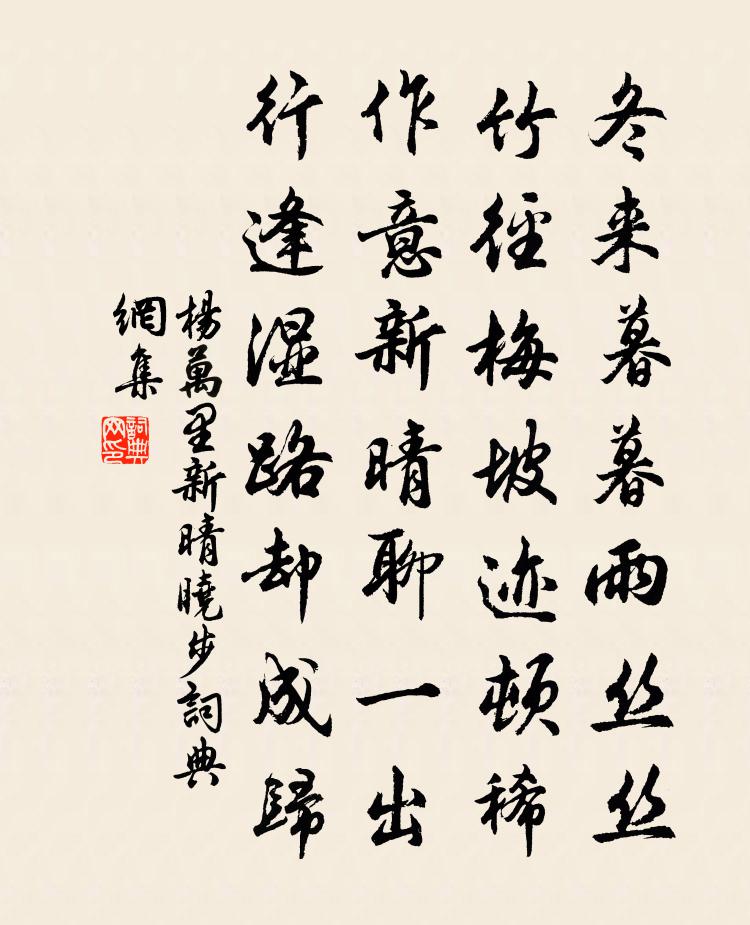 冬来暮暮雨丝丝
竹径梅坡迹顿稀
作意新晴聊一出
行逢湿路却成歸
楊萬里新晴曉步詞典
網集
詞典
网印